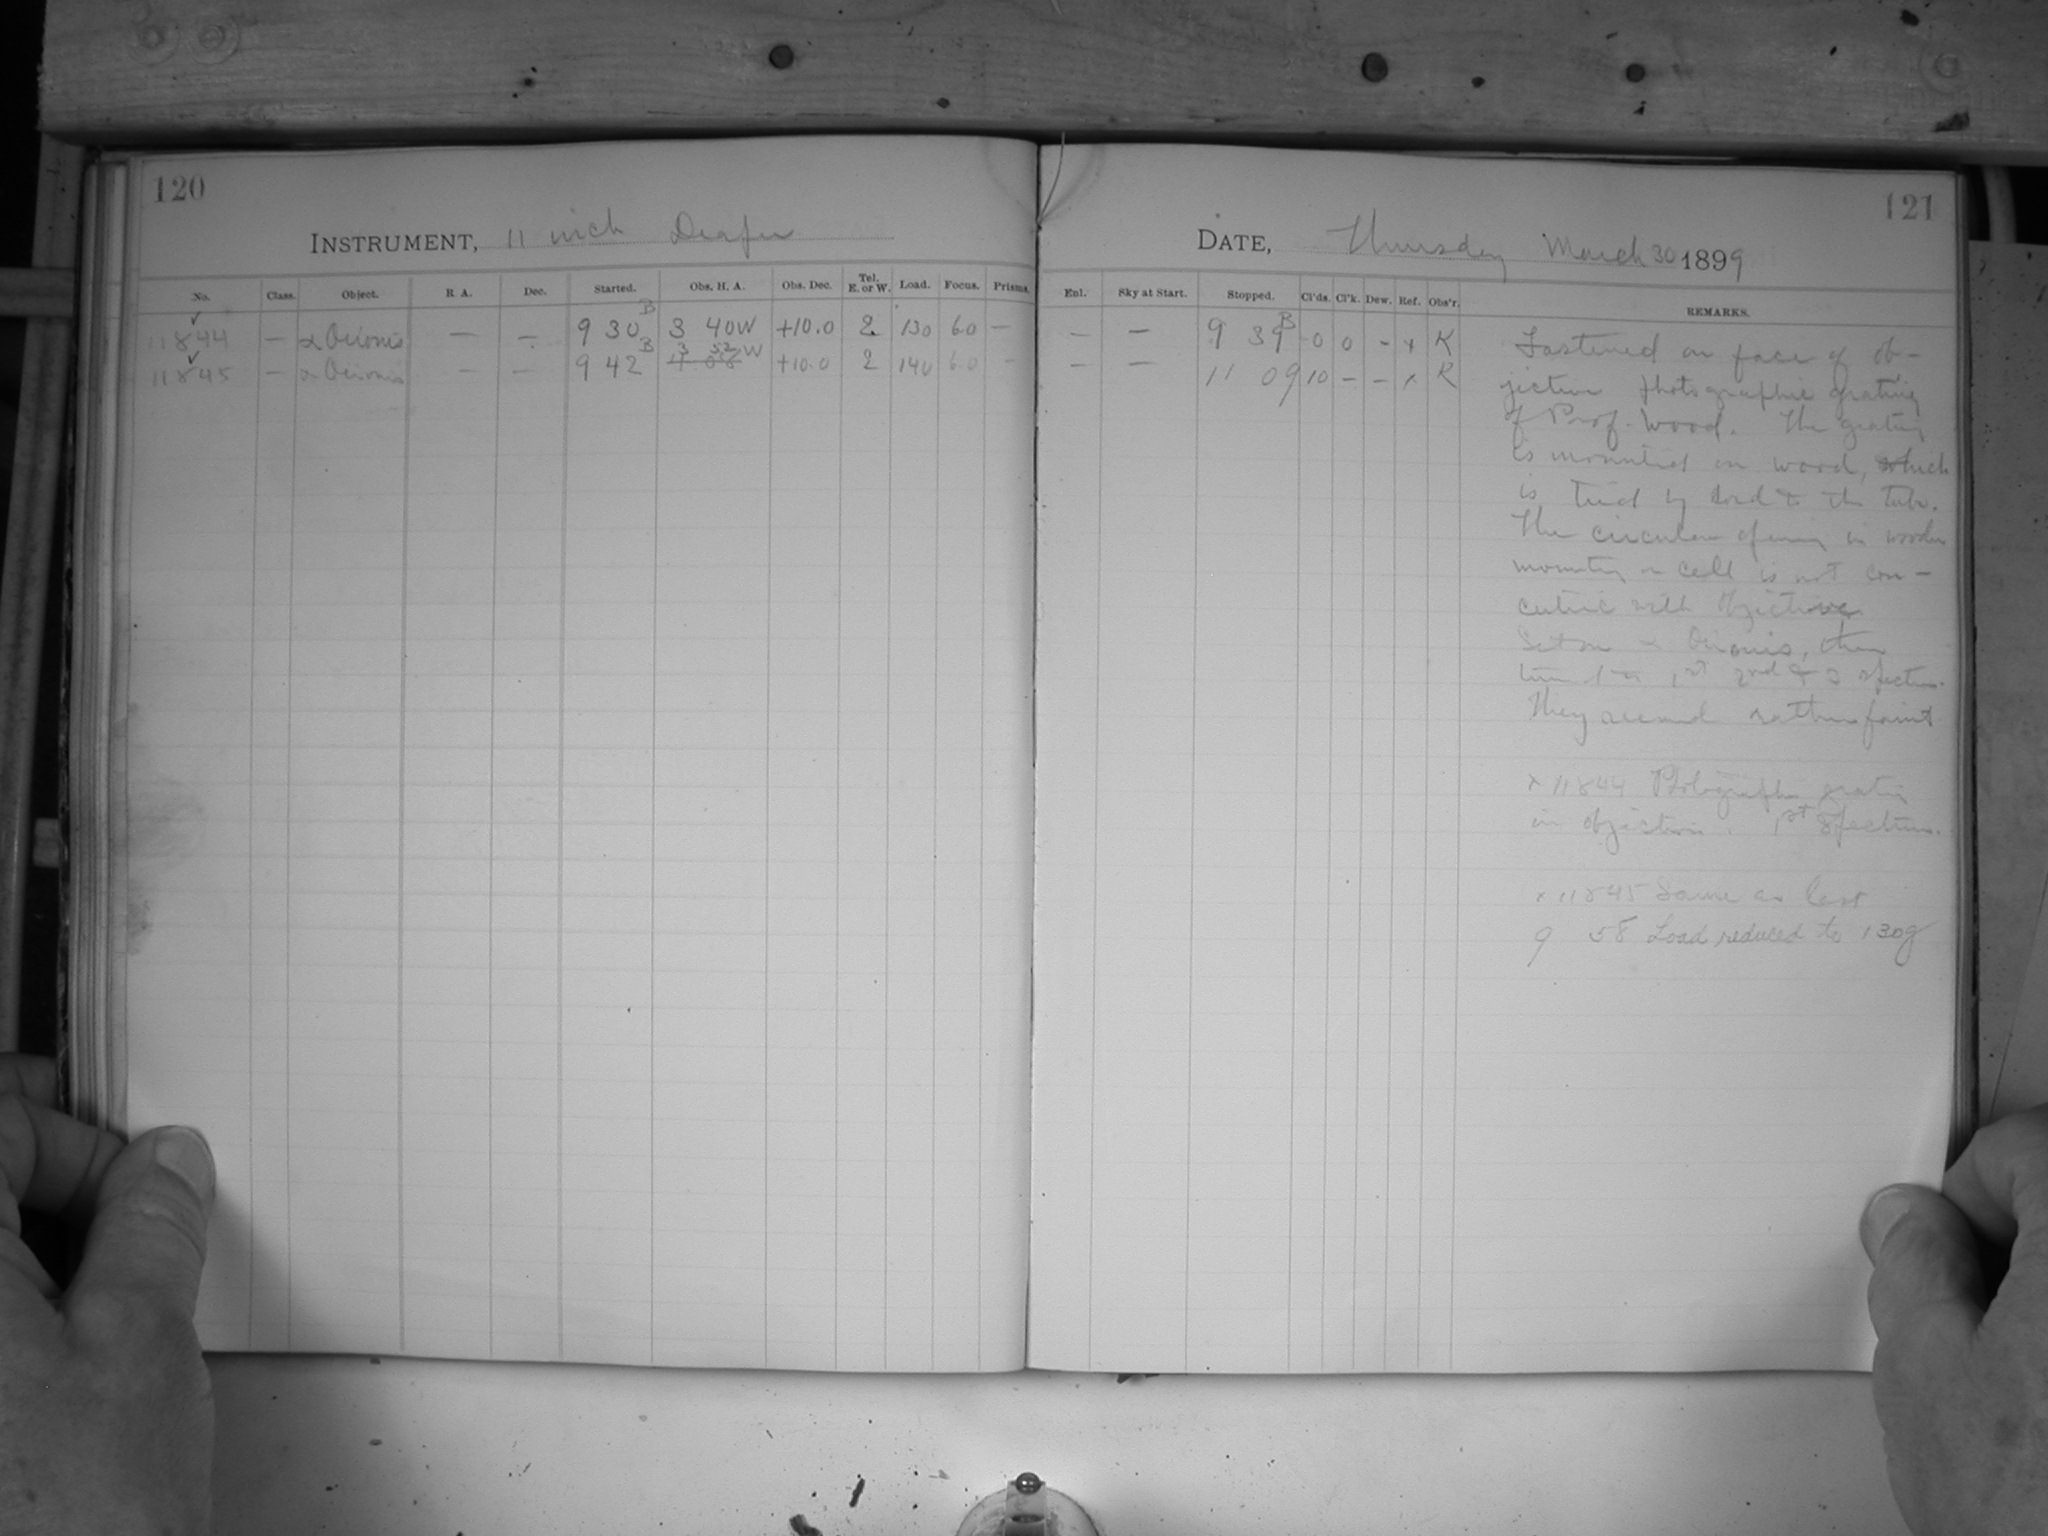 120
INSTRUMENT, 11 inch Draper
No. Class. Object. R. A. Dec. Started. Obs. H. A. Obs. Dec. Tel. E. or W. Load. Focus. Prisms.
11844 — α Orionis — — 9 30 B 3 40W +10.0 2 130 6.0 —
11845 — α Orionis — — 9 42 B 3 52 W +10.0 2 140 6.0 —
121
DATE, Thursday March 30 1899
Enl. Sky at Start. Stopped. Cl'ds. Cl'k. Dew. Ref. Obs'r. REMARKS.
— — 9 39 B 0 0 - x K
— — 11 09 10 - - x K
Fastened on face of ob-
jective photographic grating
of Prof. Wood. The grating
is mounted in wood, which
is tied by cord to the tube.
The circular opening in wooden
mounting or cell is not con-
centric with objective
Set on α Orionis, then
1st 2nd & 3 spectrum.
They seemed rather faint
x 11844 Photographic grating
on objective. 1st spectrum.
x 11845 Same as last
9 58 Load reduced to 130g